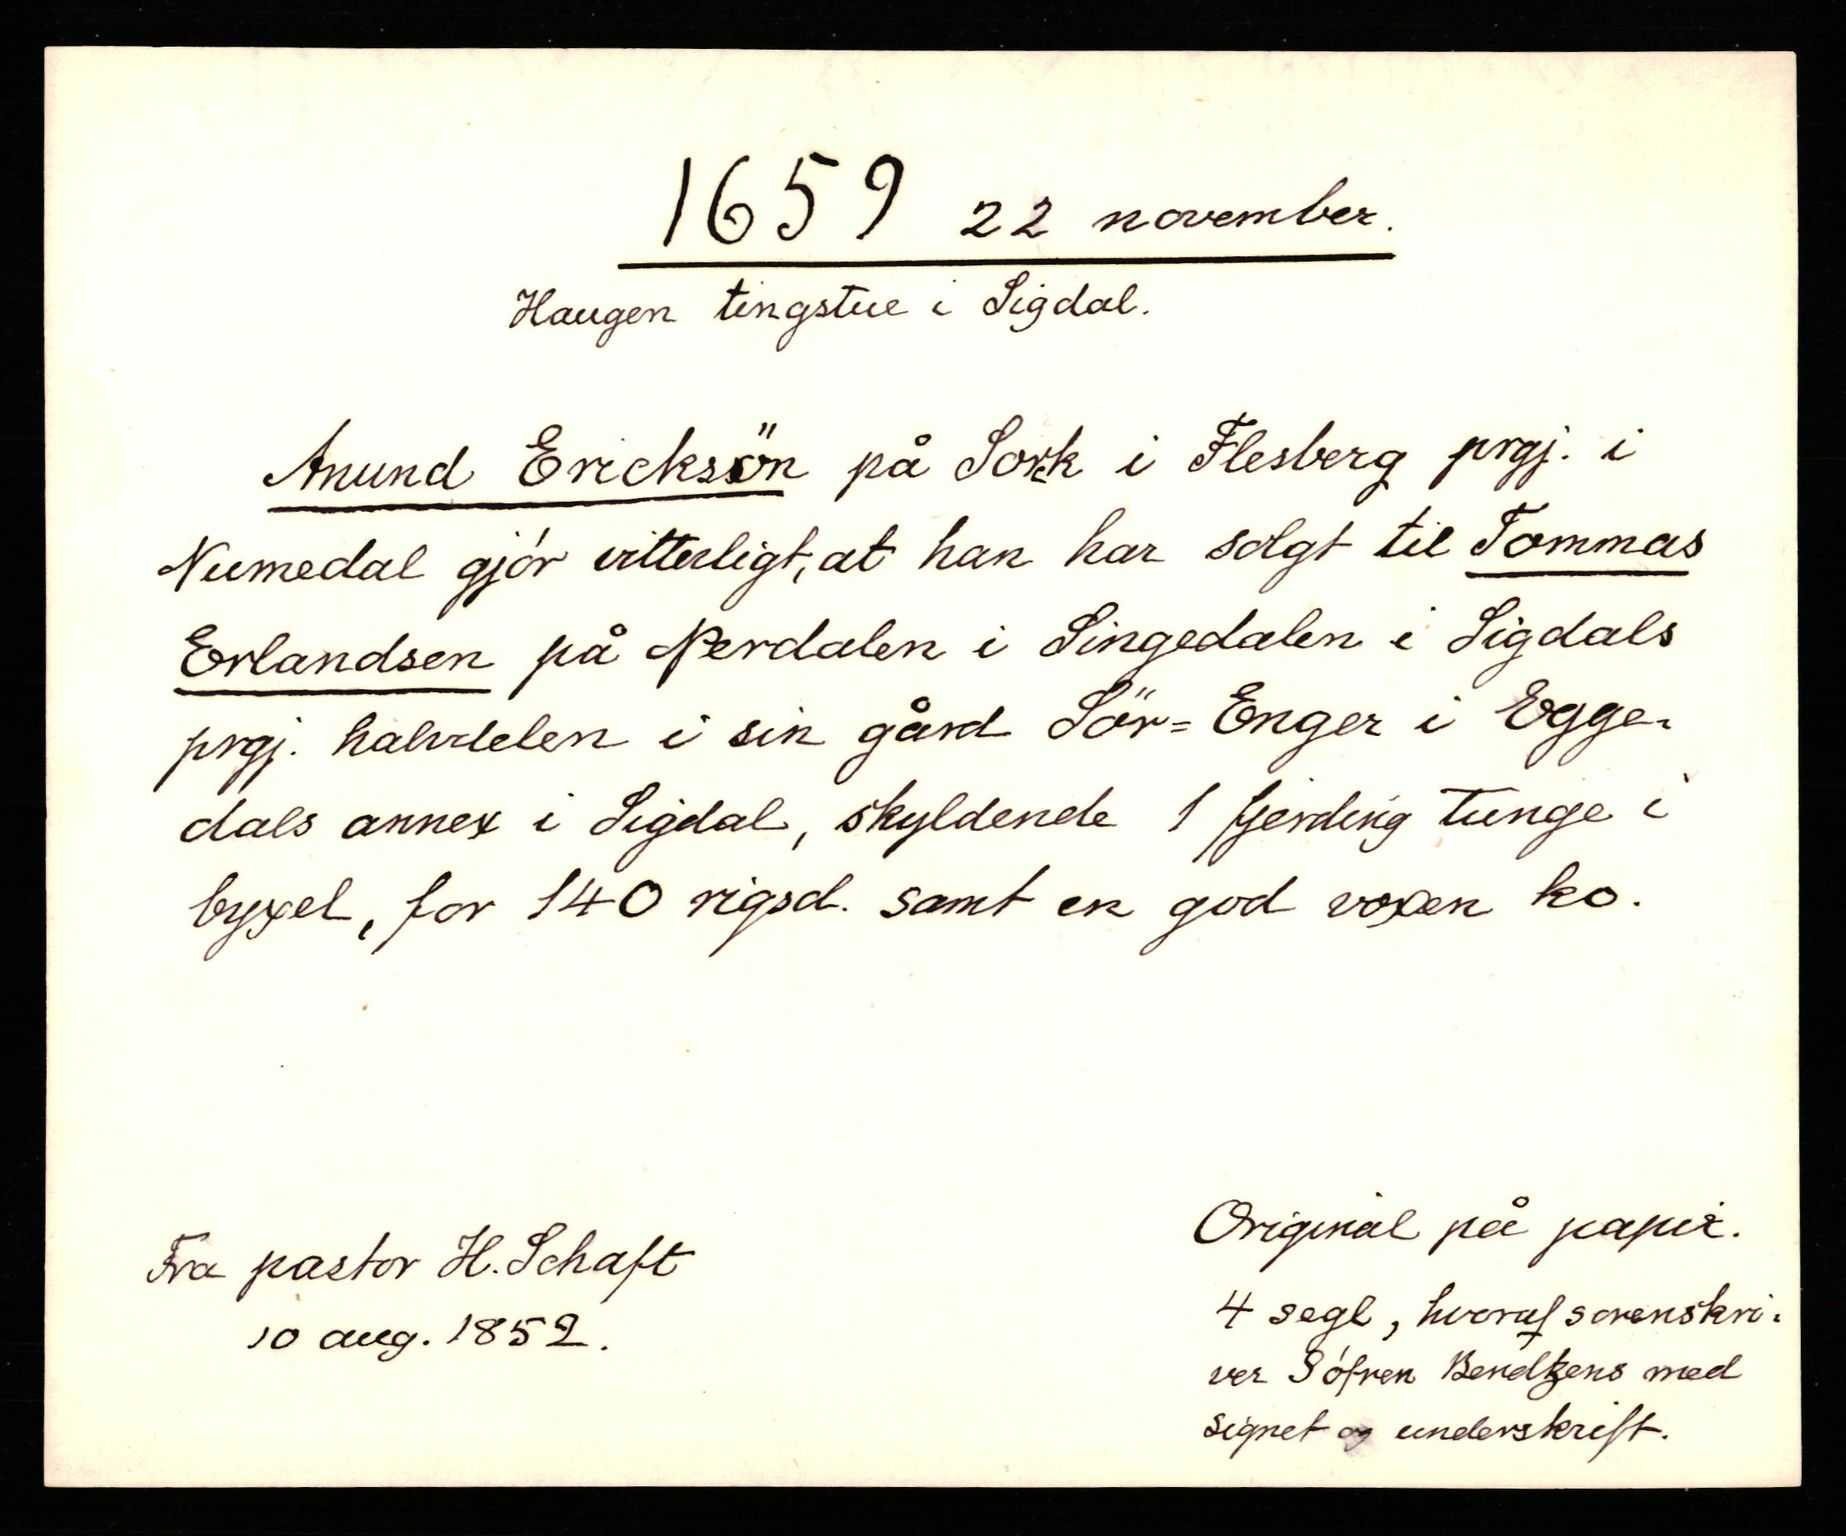 1659 22 november.
Haugen tingstue i Sigdal.
Anund Ericksön på Sork i Flesberg prgj. i
Numedal gjór vitterligt, at han har solgt til Tommas
Erlandsen på Nerdalen i Singedalen i Sigdals
prgj. halvdelen i sin gård Sör=Enger i Egge-
dals annex i Sigdal, skyldende 1 fjerding tunge i
byxel, for 140 rigsd. samt en god voxen ko.
Fra pastor H. Schaft
10 aug. 1852.
Original på papir.
4 segl, hvoraf sorenskri-
ver Söfren Bendtzens med
signet og underskrift.